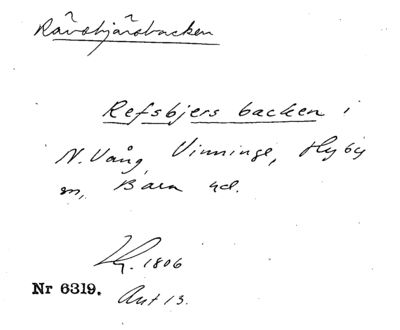 Rävsbjärsbacken
Refsbjers backen i
N. Vång, Vinninge, Hyby
sn, Bara hd.
1806
Nr 6319.
Akt 13.